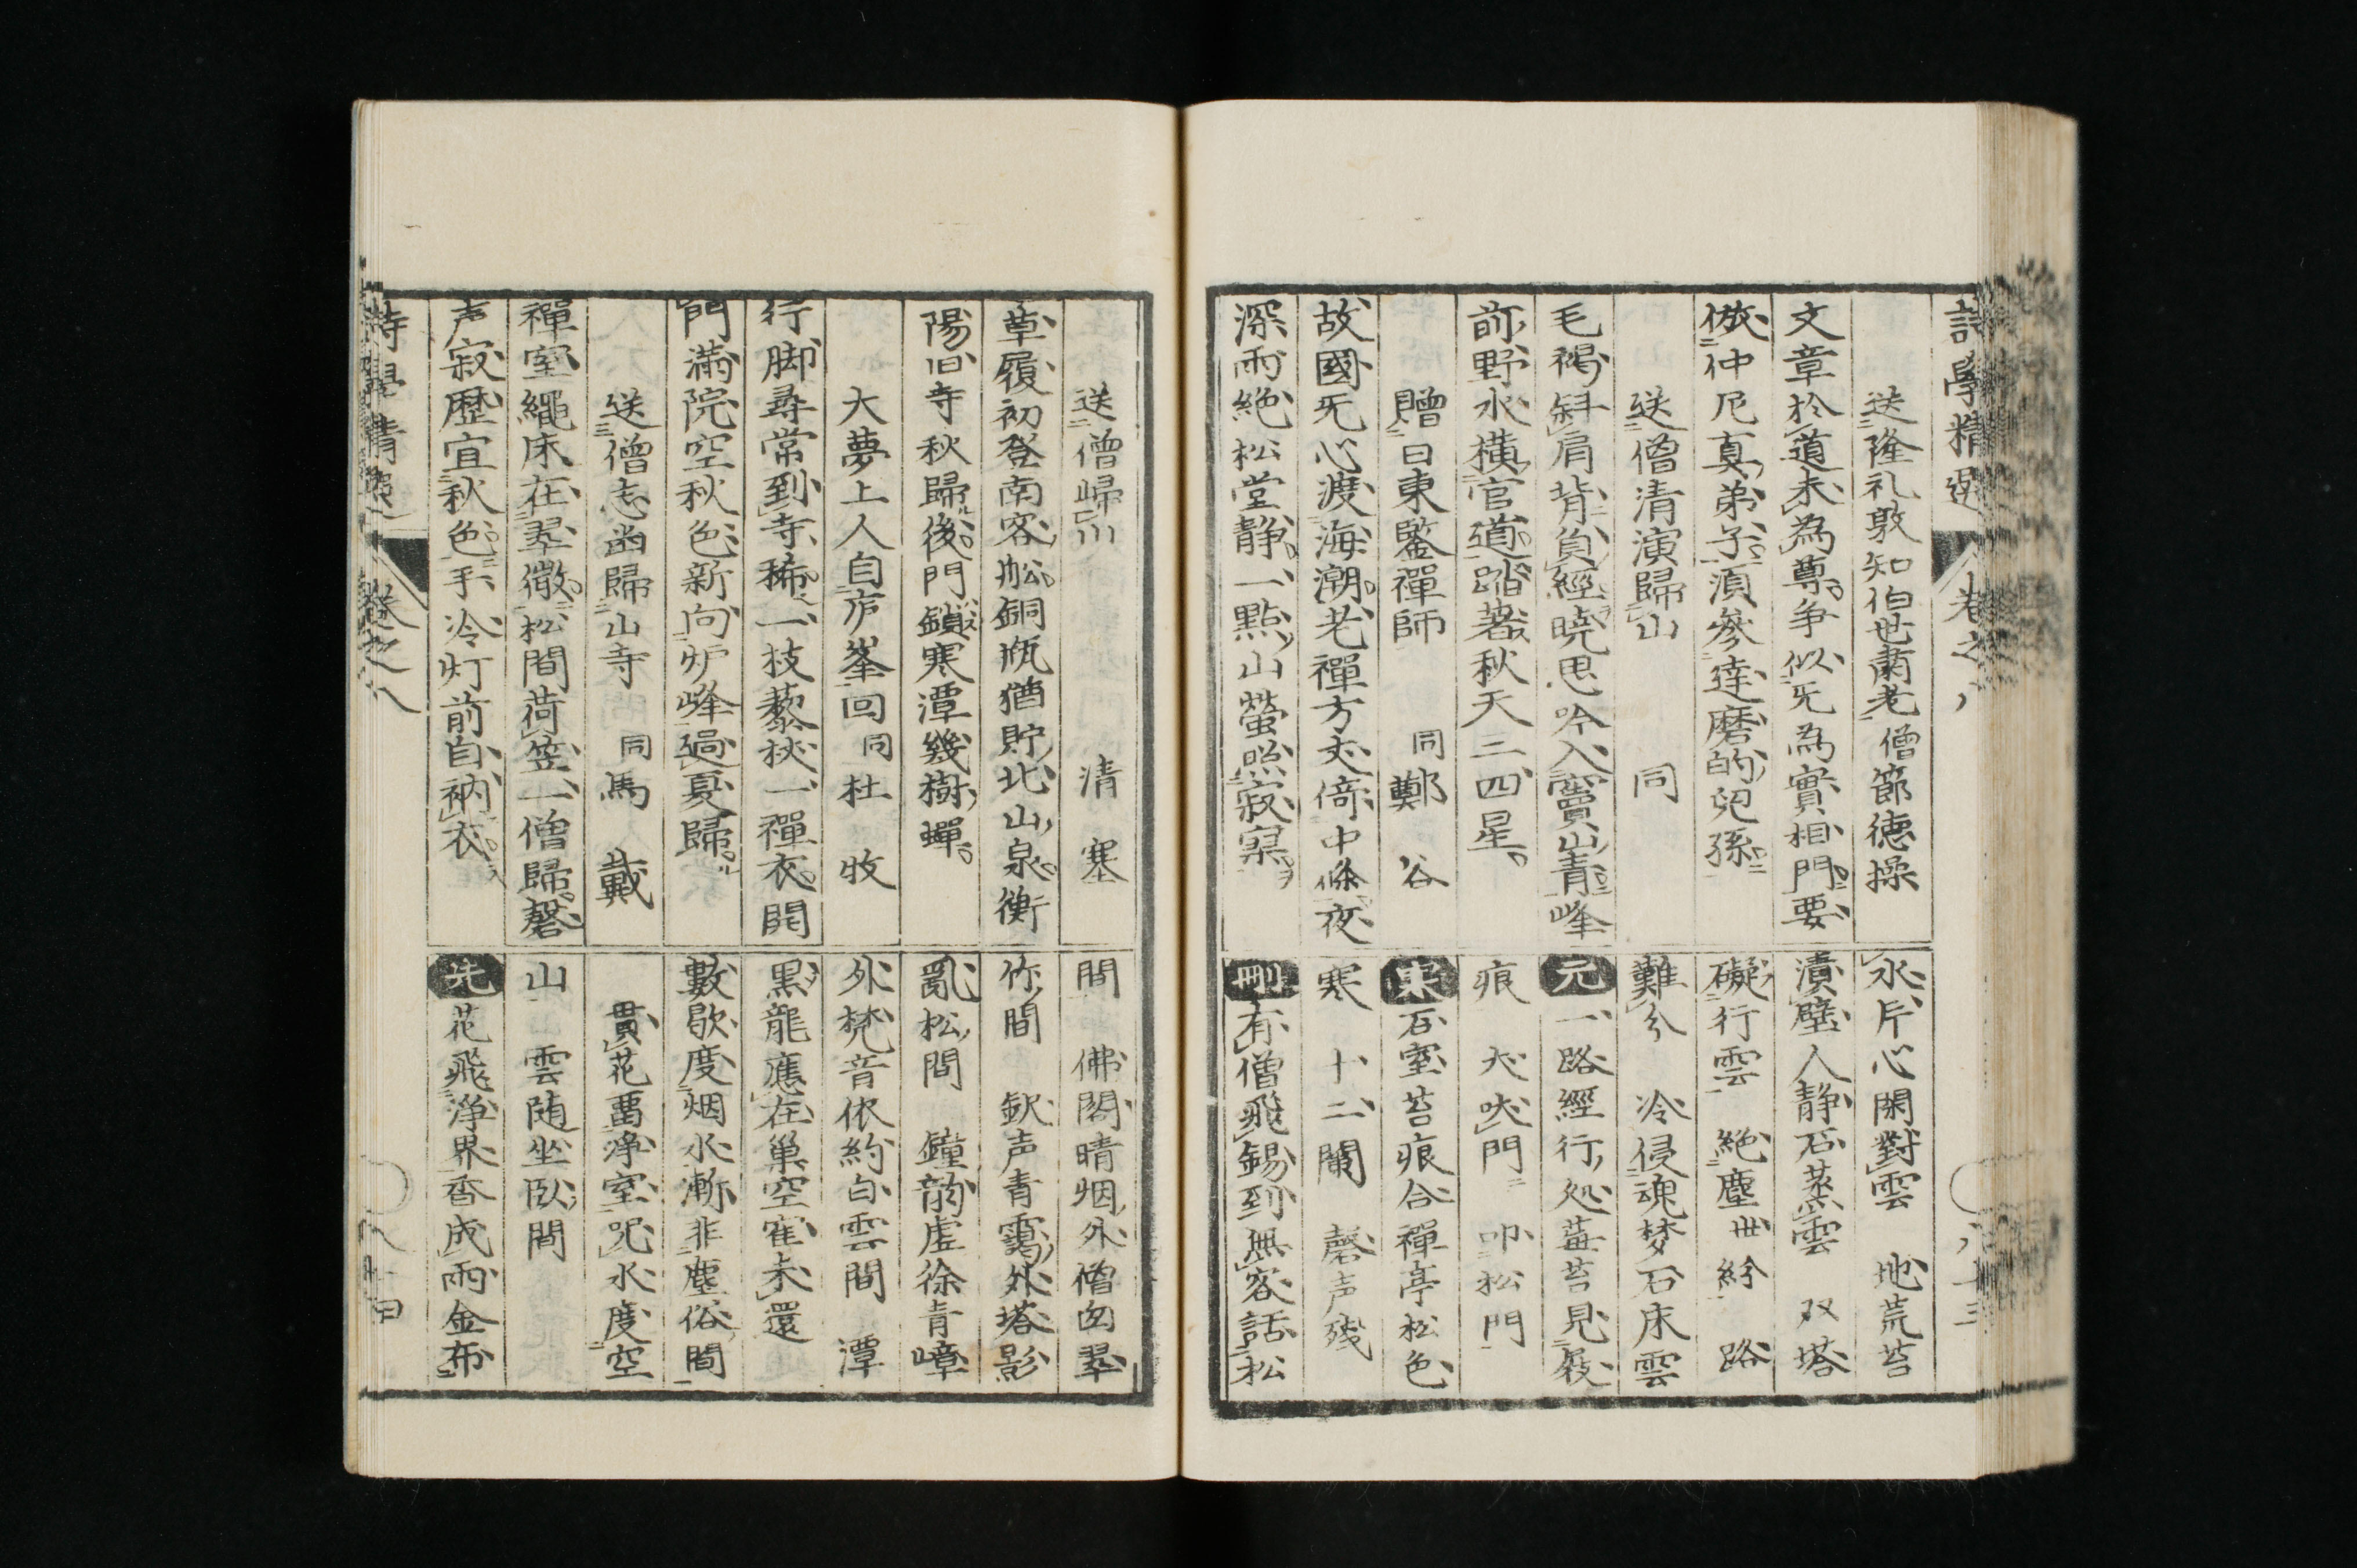 詩學精選 卷之八 八十三
送隆礼敦知伯世肅老 僧節德操
文章於道未為尊爭似旡為實相門要
倣仲尼真弟子須參達磨的兒孫
送僧清演歸山 同
毛褐斜肩背負經曉思吟入竇山青峰
前野水橫官道踏著秋天三四星
贈日東鑒禪師 同 鄭谷
故國旡心渡海潮老禪方丈倚中條夜
深雨絶松堂静一點山螢照寂寞
水片心閑對雲 地荒苔
漬壁人静石蒸雲 双塔
礙行雲 絶塵世紛 路
難分 冷侵魂梦石床雲
元 一路經行処莓苔見屐
痕 犬吠門 叩松門
寒 石室苔痕合禪亭松色
寒 十二闌 磬声殘
刪 有僧飛錫到無客話松
送僧歸川 清塞
草履初登南客舩銅瓶猶貯北山泉衡
陽旧寺秋歸後門鎖寒潭幾樹蟬
大夢上人自庐峯回 同 杜牧
行脚尋常到寺稀一枝藜杖一禪衣開
門滿院空秋色新向炉峰過夏歸
送僧志幽歸山寺 同 馬戴
禪室繩床在翠微松間荷笠一僧歸磬
声寂歴宜秋色手冷灯前自衲衣
間 佛閣晴烟外僧囱翠
竹間 釟声青靄外塔影
亂松間 鐘韵虚徐青嶂
外梵音依約白雲間 潭
黒龍應在巢空寉未還
數歇度烟水漸非塵俗間
貫花畱浄室咒水度空
山 雲随坐臥間
先 花飛浄界香成雨金布
詩學精選 卷之八 八十四